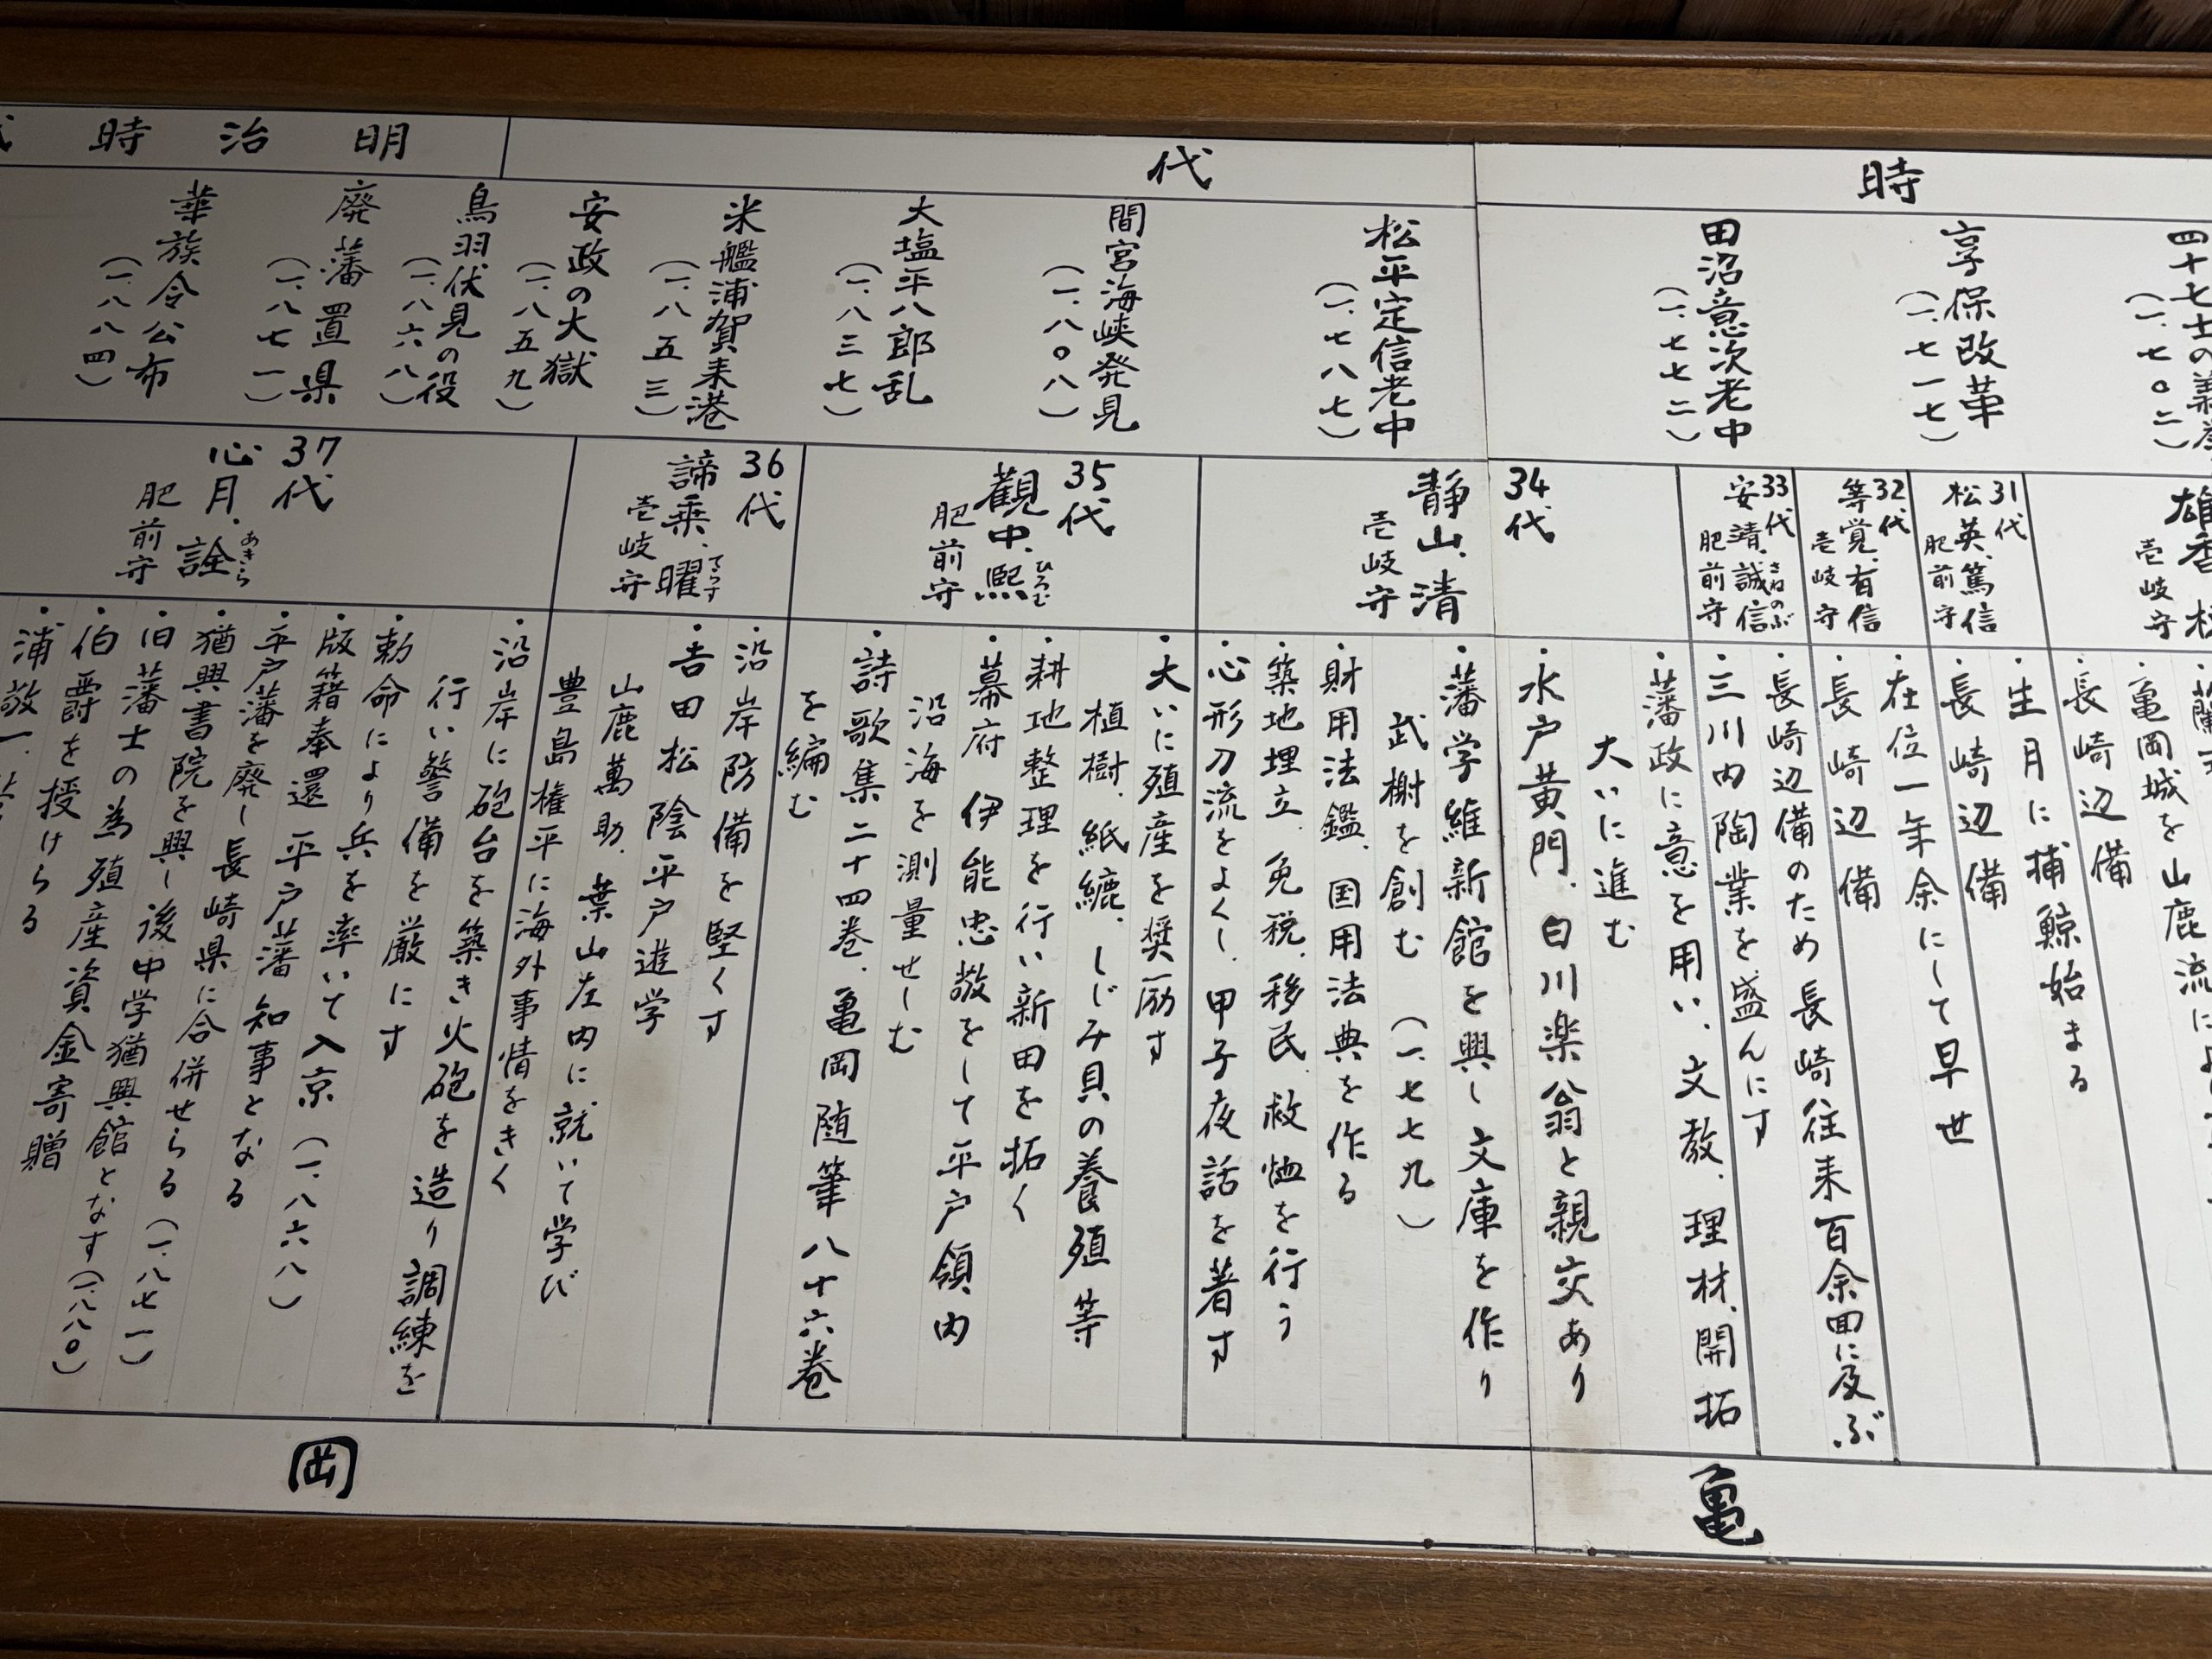 時
代
明治時
四十七士の義
(一、七〇二)
享保改革
(一、七一七)
田沼意次老中
(一、七七二)
松平定信老中
(一、七八七)
間宮海峡発見
(一、八〇八)
大塩平八郎乱
(一、八三七)
米艦浦賀来港
(一、八五三)
安政の大獄
(一、八五九)
鳥羽伏見の役
(一、八六八)
廃藩置県
(一、八七一)
華族令公布
(一、八八四)
雄香
壱岐守
・亀岡城を山鹿流に
・長崎辺備
31代
松英、篤信
肥前守
・生月に捕鯨始まる
・長崎辺備
32代
等覚、有信
壱岐守
・在位一年余にして早世
・長崎辺備
33代
安靖、誠信さねのぶ
肥前守
・長崎辺備のため長崎往来百余回に及ぶ
・三川内陶業を盛んにす
34代
静山、清
壱岐守
・藩政に意を用い、文教、理材、開拓
大いに進む
・水戸黄門、白川楽翁と親交あり
・藩学維新館を興し文庫を作り
武榭を創む(一、七七九)
・財用法鑑、国用法典を作る
・築地埋立、免税、移民、救恤を行う
・心形刀流をよくし、甲子夜話を著す
35代
觀中、熈ひろむ
肥前守
・大いに殖産を奨励す
植樹、紙纐、しじみ貝の養殖等
・耕地整理を行い新田を拓く
・幕府 伊能忠敬をして平戸領内
沿海を測量せしむ
・詩歌集二十四巻、亀岡随筆八十六巻
を編む
36代
諦乗、曜てらす
壱岐守
・沿岸防備を堅くす
・吉田松陰平戸遊学
山鹿萬助、葉山左内に就いて学び
豊島権平に海外事情をきく
37代
心月、詮あきら
肥前守
・沿岸に砲台を築き火砲を造り調練を
行い警備を厳にす
・勅命により兵を率いて入京(一、八六八)
・版籍奉還 平戸藩知事となる
・平戸藩を廃し長崎県に合併せらる(一、八七一)
・猶興書院を興し後中学猶興館となす(一、八八〇)
・旧藩士の為殖産資金寄贈
・伯爵を授けらる
・浦敬一、
亀
岡